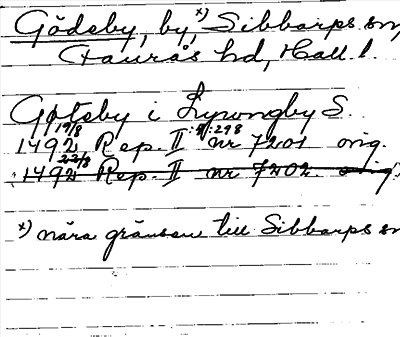 Gödeby, by, x) Sibbarps sn,
Faurås hd, Hall. l.
Gøtsby i Lywngby S.
1492 19/8 Rep. II :4:298 nr 7201 orig.
1492 22/8 Rep. II nr 7202 orig.
x) nära gränsen till Sibbarps sn